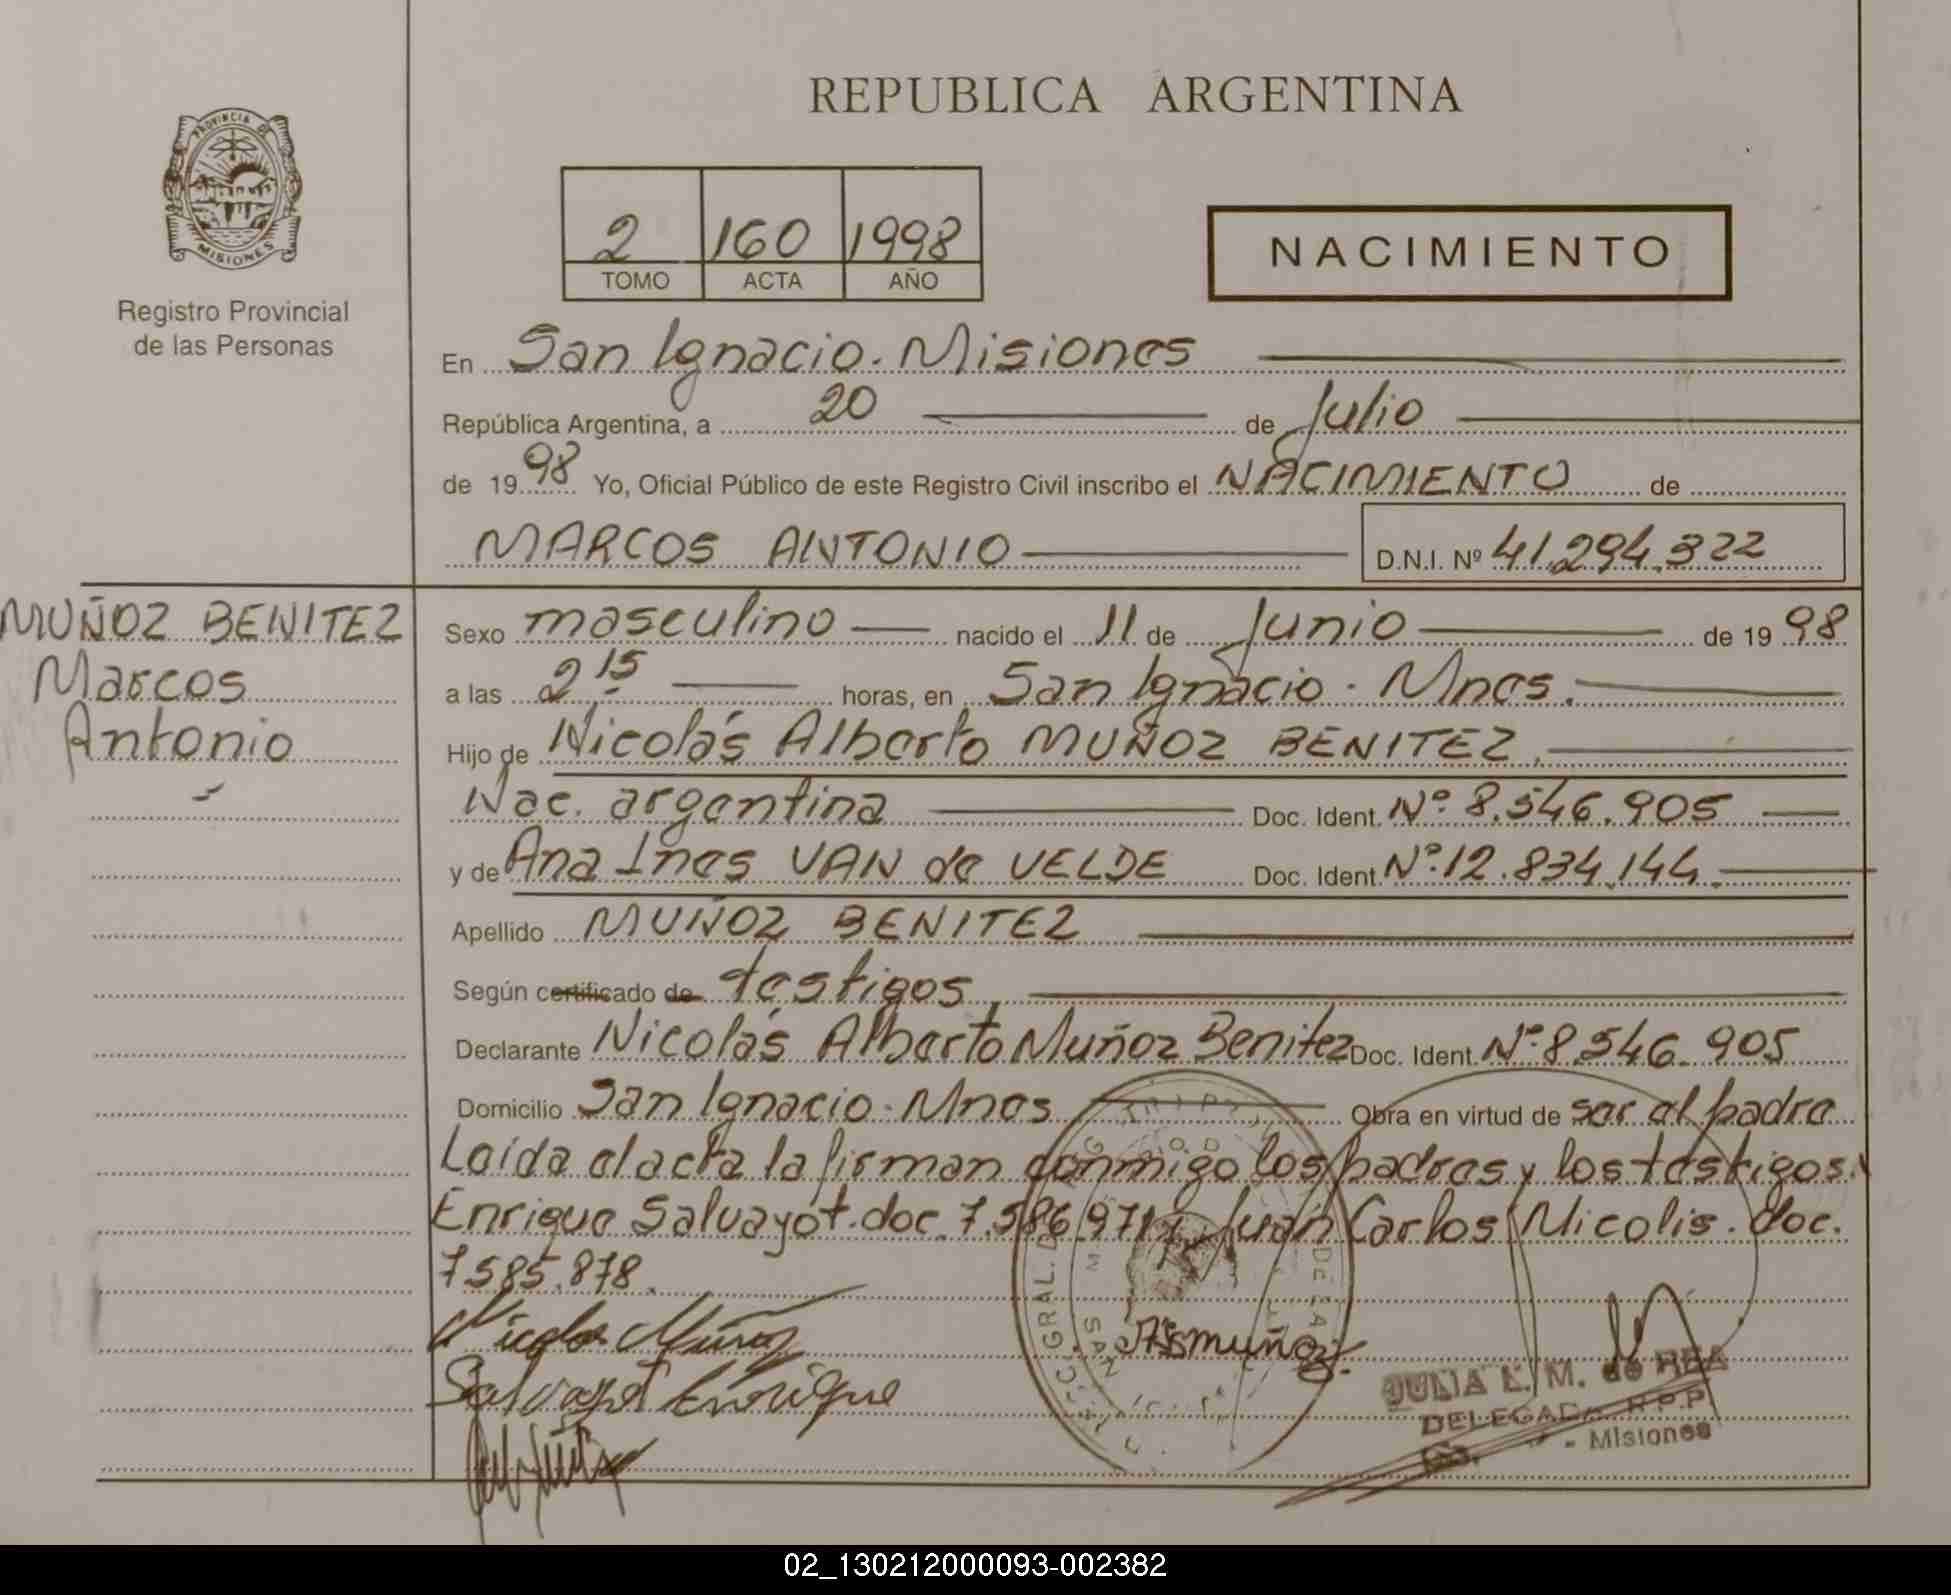 REPUBLICA ARGENTINA
PROVINCIA DE
MISIONES
Registro Provincial
de las Personas
2 160 1998
TOMO ACTA AÑO
NACIMIENTO
En San Ignacio. Misiones
República Argentina, a 20 de Julio
de 1998 Yo, Oficial Público de este Registro Civil inscribo el NACIMIENTO de
MARCOS ANTONIO D.N.I. Nº 41.294.322
MUÑOZ BENITEZ
Marcos
Antonio
Sexo masculino nacido el 11 de Junio de 1998
a las 2 15 horas, en San Ignacio. Mnes.
Hijo de Nicolás Alberto MUÑOZ BENITEZ,
Nac. argentina Doc. Ident. Nº 8.546.905
y de Ana Ines VAN de VELDE Doc. Ident. Nº 12.834.144.
Apellido MUÑOZ BENITEZ
Según certificado de testigos,
Declarante Nicolás Alberto Muñoz Benitez Doc. Ident. Nº 8.546.905
Domicilio San Ignacio. Mnes Obra en virtud de ser el padre
Leida el acta la firman conmigo los padres y los testigos.
Enrique Salvayot. doc. 7.586.971 y Juan Carlos Nicolis. doc.
7585.878.
Nicolas Muñoz
AISmuñoz
Salvayot Enrique
JULIA L. M. de REA
DELEGADA R.P.P.
- Misiones
02_130212000093-002382